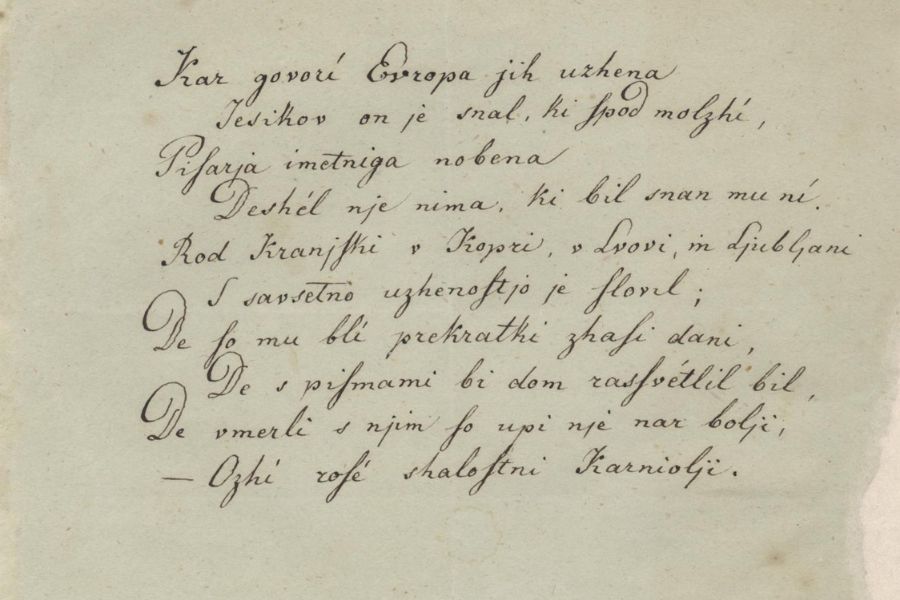 Kar govorí Evropa jih uzhena
Jesikov on je snal, ki ſpod molzhí,
Piſarja imetniga nobena
Deshél nje nima, ki bil snan mu ní.
Rod Kranjſki v Kopri, v Lvovi, in Ljubljani
S savsetno uzhenoſtjo je ſlovil;
De ſo mu blí prekratki zhaſi dani,
De s piſmami bi dom rasſvétlil bil,
De vmerli s njim ſo upi nje nar bolji,
— Ozhí roſé shaloſtni Karniolji.